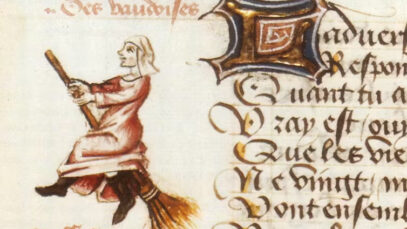 Des vaudoises
L adver
Respon
Quant tu a
Vray est ouy
Que les vie
Ne vingt m
Vont ensem